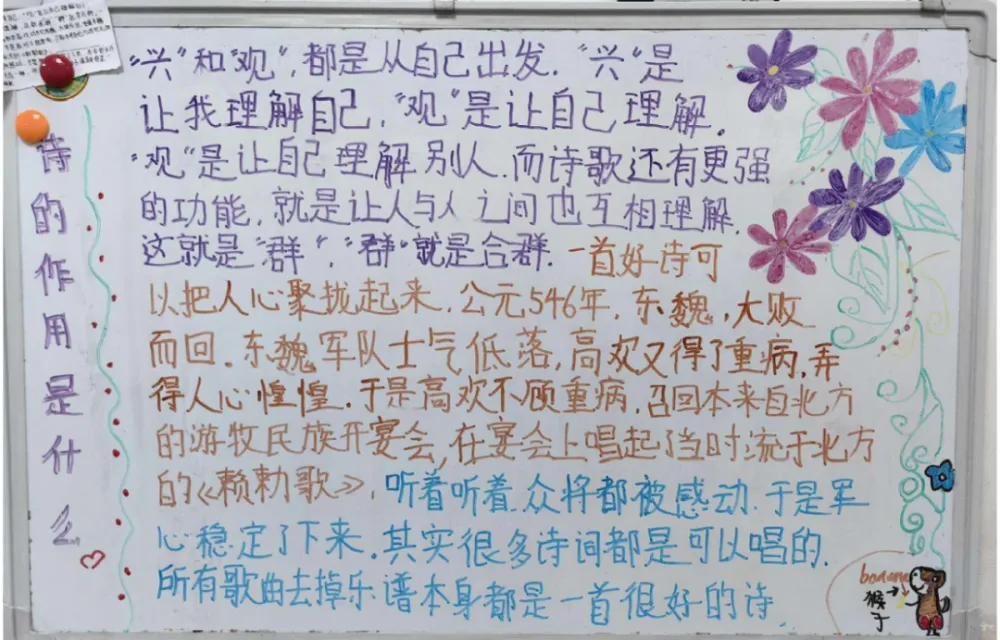 诗的作用是什么
"兴"和"观",都是从自己出发."兴"是
让我理解自己,"观"是让自己理解.
"观"是让自己理解别人.而诗歌还有更强
的功能,就是让人与人之间也互相理解.
这就是"群","群"就是合群.一首好诗可
以把人心聚拢起来.公元546年,东魏,大败
而回.东魏军队士气低落,高欢又得了重病,弄
得人心惶惶.于是高欢不顾重病,召回本来自北方
的游牧民族开宴会,在宴会上唱起了当时流于北方
的《赖勅歌》,听着听着.众将都被感动.于是军
心稳定了下来.其实很多诗词都是可以唱的.
所有歌曲去掉乐谱本身都是一首很好的诗.
banana
猴子